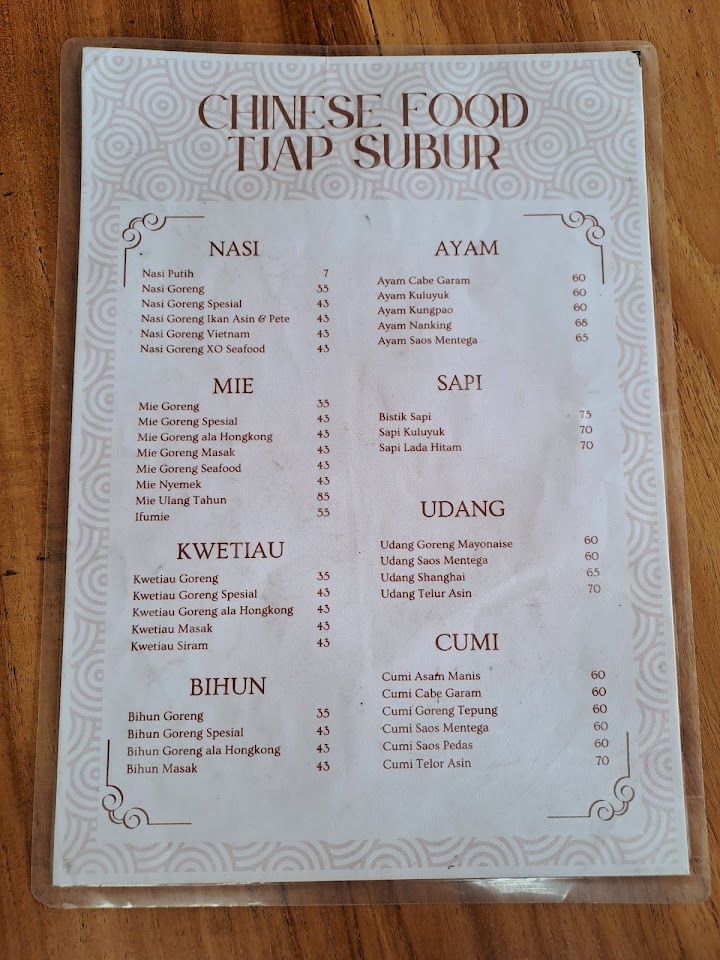 CHINESE FOOD
TJAP SUBUR
NASI
Nasi Putih 7
Nasi Goreng 35
Nasi Goreng Spesial 43
Nasi Goreng Ikan Asin & Pete 43
Nasi Goreng Vietnam 43
Nasi Goreng XO Seafood 43
MIE
Mie Goreng 35
Mie Goreng Spesial 43
Mie Goreng ala Hongkong 43
Mie Goreng Masak 43
Mie Goreng Seafood 43
Mie Nyemek 43
Mie Ulang Tahun 85
Ifumie 55
KWETIAU
Kwetiau Goreng 35
Kwetiau Goreng Spesial 43
Kwetiau Goreng ala Hongkong 43
Kwetiau Masak 43
Kwetiau Siram 43
BIHUN
Bihun Goreng 35
Bihun Goreng Spesial 43
Bihun Goreng ala Hongkong 43
Bihun Masak 43
AYAM
Ayam Cabe Garam 60
Ayam Kuluyuk 60
Ayam Kungpao 60
Ayam Nanking 68
Ayam Saos Mentega 65
SAPI
Bistik Sapi 75
Sapi Kuluyuk 70
Sapi Lada Hitam 70
UDANG
Udang Goreng Mayonaise 60
Udang Saos Mentega 60
Udang Shanghai 65
Udang Telur Asin 70
CUMI
Cumi Asam Manis 60
Cumi Cabe Garam 60
Cumi Goreng Tepung 60
Cumi Saos Mentega 60
Cumi Saos Pedas 60
Cumi Telor Asin 70